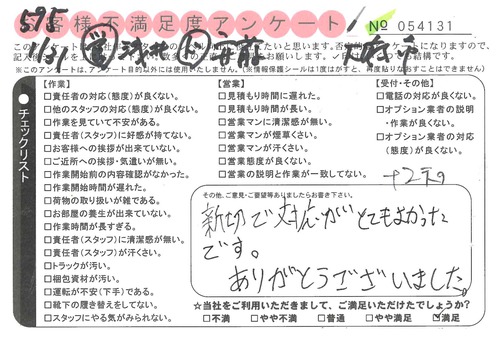 お客様不満足度アンケート
№ 054131
595
1/31
大府市
※このアンケートは、アンケート目的以外には使用いたしません。(※情報保護シールは1度はがすと、再度貼りなおすことはできません)
チェックリスト
【作業】
□責任者の対応(態度)が良くない。
□他のスタッフの対応(態度)が良くない。
□作業を見ていて不安がある。
□責任者(スタッフ)に好感が持てない。
□お客様への挨拶が出来ていない。
□ご近所への挨拶・気遣いが無い。
□作業開始前の内容確認がなかった。
□作業開始時間が遅れた。
□荷物の取り扱いが雑である。
□お部屋の養生が出来ていない。
□作業時間が長すぎる。
□責任者(スタッフ)に清潔感が無い。
□トラックが汚い。
□梱包資材が汚い。
□運転が不安(下手)である。
□靴下の履き替えをしてない。
□スタッフにやる気がみられない。
【営業】
□見積もり時間に遅れた。
□見積もり時間が長い。
□営業マンに清潔感が無い。
□営業マンが煙草くさい。
□営業マンが汗くさい。
□営業態度が良くない。
□営業の説明と作業が一致してない。
【受付・その他】
□電話の対応が良くない。
□オプション業者の説明
・作業が良くない。
□オプション業者の対応
(態度)が良くない。
その他、ご意見・ご要望等ありましたらお書き下さい。
親切で対応がとてもよかった
です。
ありがとうございました。
☆当社をご利用いただきまして、ご満足いただけたでしょうか?
□不満 □やや不満 □普通 □やや満足 ☑満足